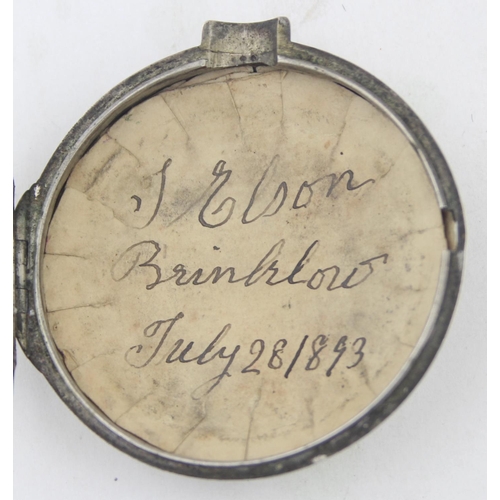 J Elson
Brinklow
July 28/893